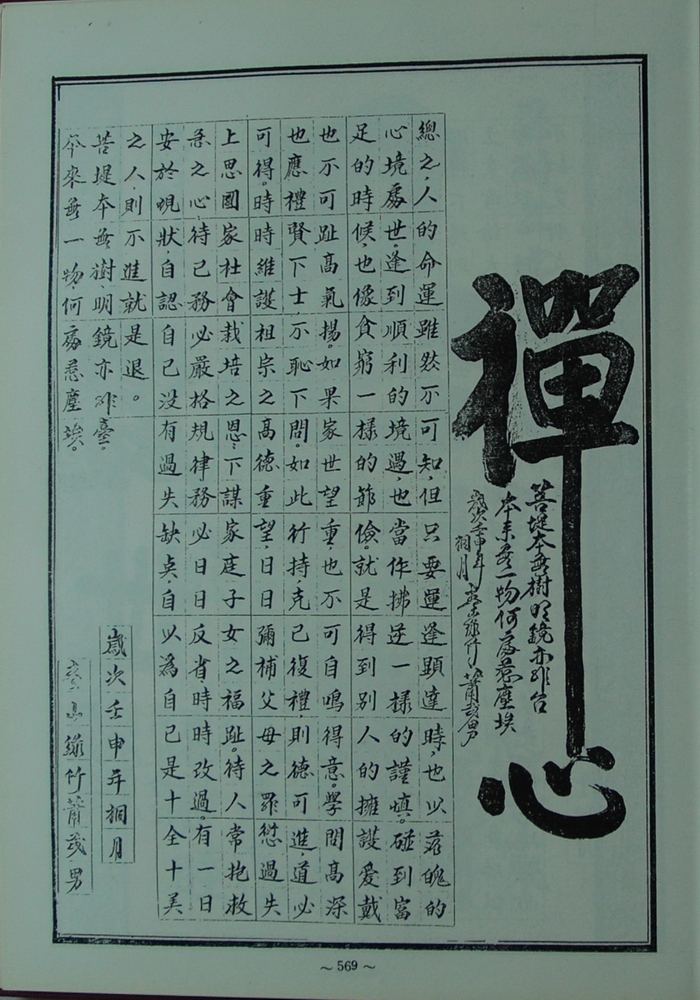 禪心
菩提本無樹明鏡亦非台
本來無一物何處惹塵埃
歲次壬申年桐月
總之,人的命運雖然不可知,但只要運逢顯達時,也以落魄的
心境處世。逢到順利的境遇,也當作拂逆一樣的謹慎。碰到富
足的時候,也像貧窮一樣的節儉。就是得到別人的擁護愛戴
也不可趾高氣揚。如果家世望重,也不可自鳴得意。學問高深
也應禮賢下士,不恥下問。如此行持,克己復禮,則德可進,道必
可得。時時維護祖宗之高德重望,日日彌補父母之罪愆過失
上思國家社會栽培之恩;下謀家庭子女之福趾。待人常抱救
急之心,待已務必嚴格規律,務必日日反省,時時改過。有一日
安於現狀,自認自己沒有過失缺点,自以為自己是十全十美
之人,則不進就是退。
菩提本無樹,明鏡亦非臺。
本來無一物,何處惹塵埃。
歲次壬申年桐月
綠竹蕭茂男
~ 569 ~